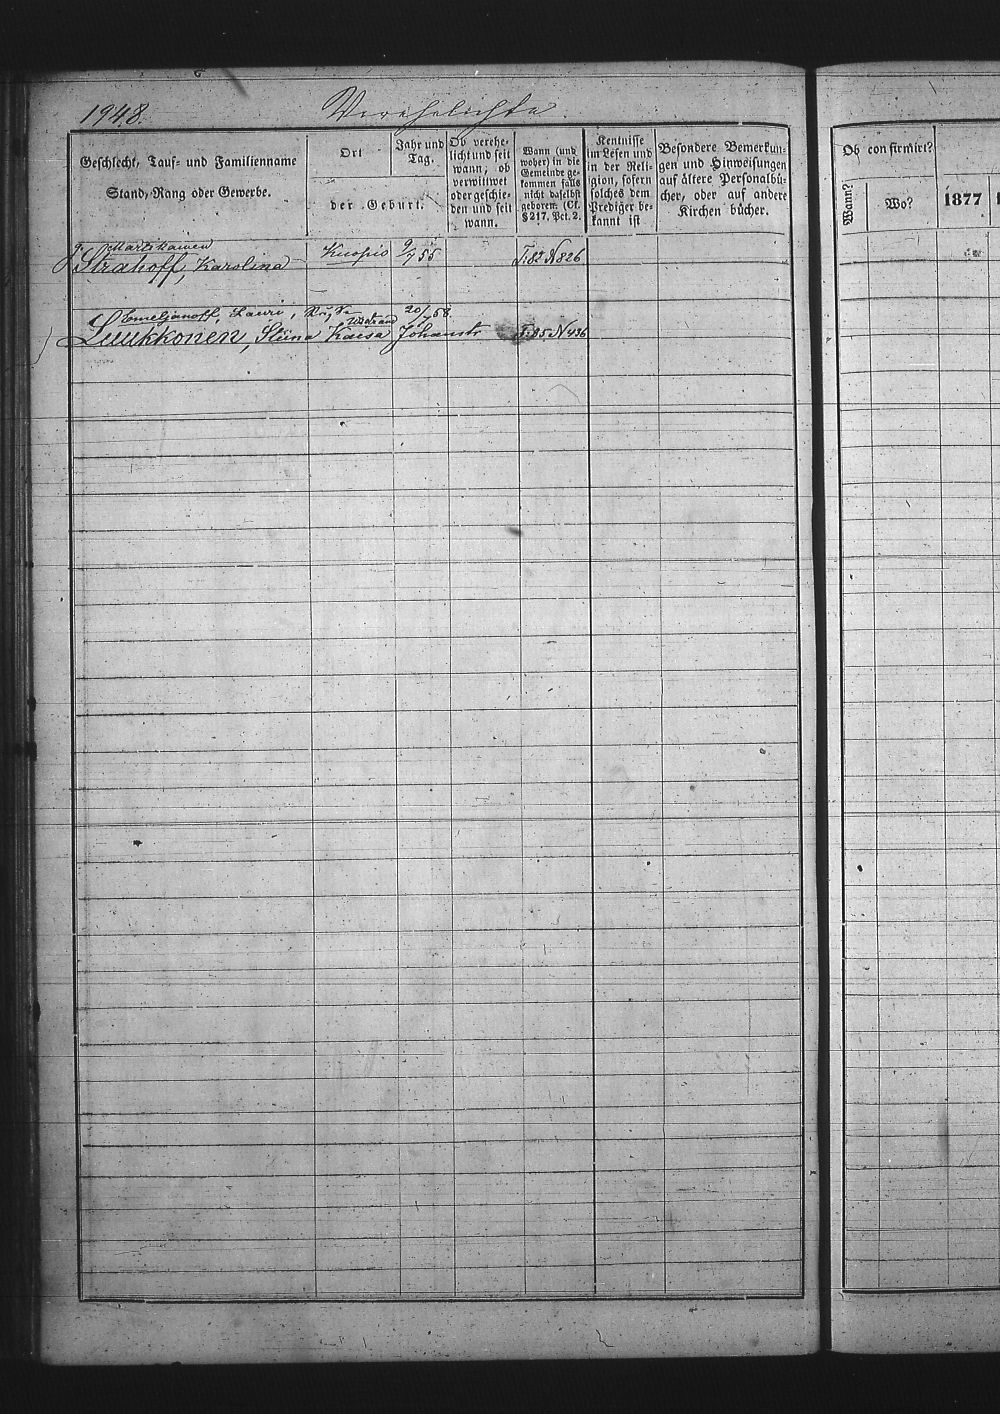 1948. Verehelichte.
Geschlecht, Tauf- und Familienname
Stand, Rang oder Gewerbe.
Ort
Jahr und
Tag.
der Geburt.
Ob verehe-
licht und seit
wann; ob
verwittwet
oder geschie-
den und seit
wann.
Wann (und
woher) in die
Gemeinde ge-
kommen falls
nicht daselbst
geboren. (Cf.
§ 217, Pct. 2.
Kentnisse
im Lesen und
in der Reli-
gion, sofern
solches dem
Prediger be-
kannt ist
Besondere Bemerkun-
gen und Hinweisungen
auf ältere Personalbü-
cher, oder auf andere
Kirchen bücher.
Ob confirmirt?
Wann?
Wo?
1877
g. Martikainen
Strahoff, Karolina Kuopio 9/7 55 T. 82 N 826
Emeljanoff, Lauri, 20/7 58.
Luukkonen, Stiina Kaisa Johanstr T. 85 N 436